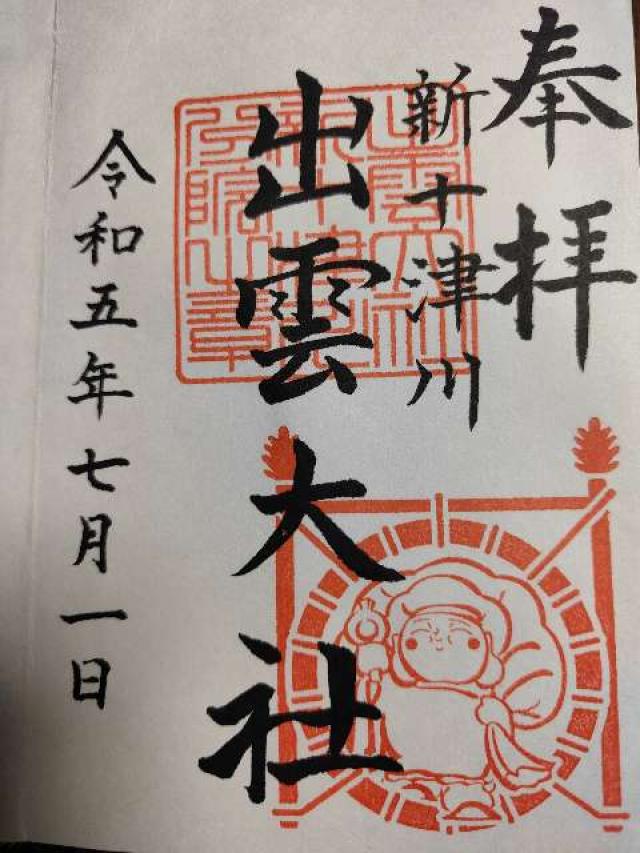 奉拝
新十津川
出雲大社
令和五年七月一日